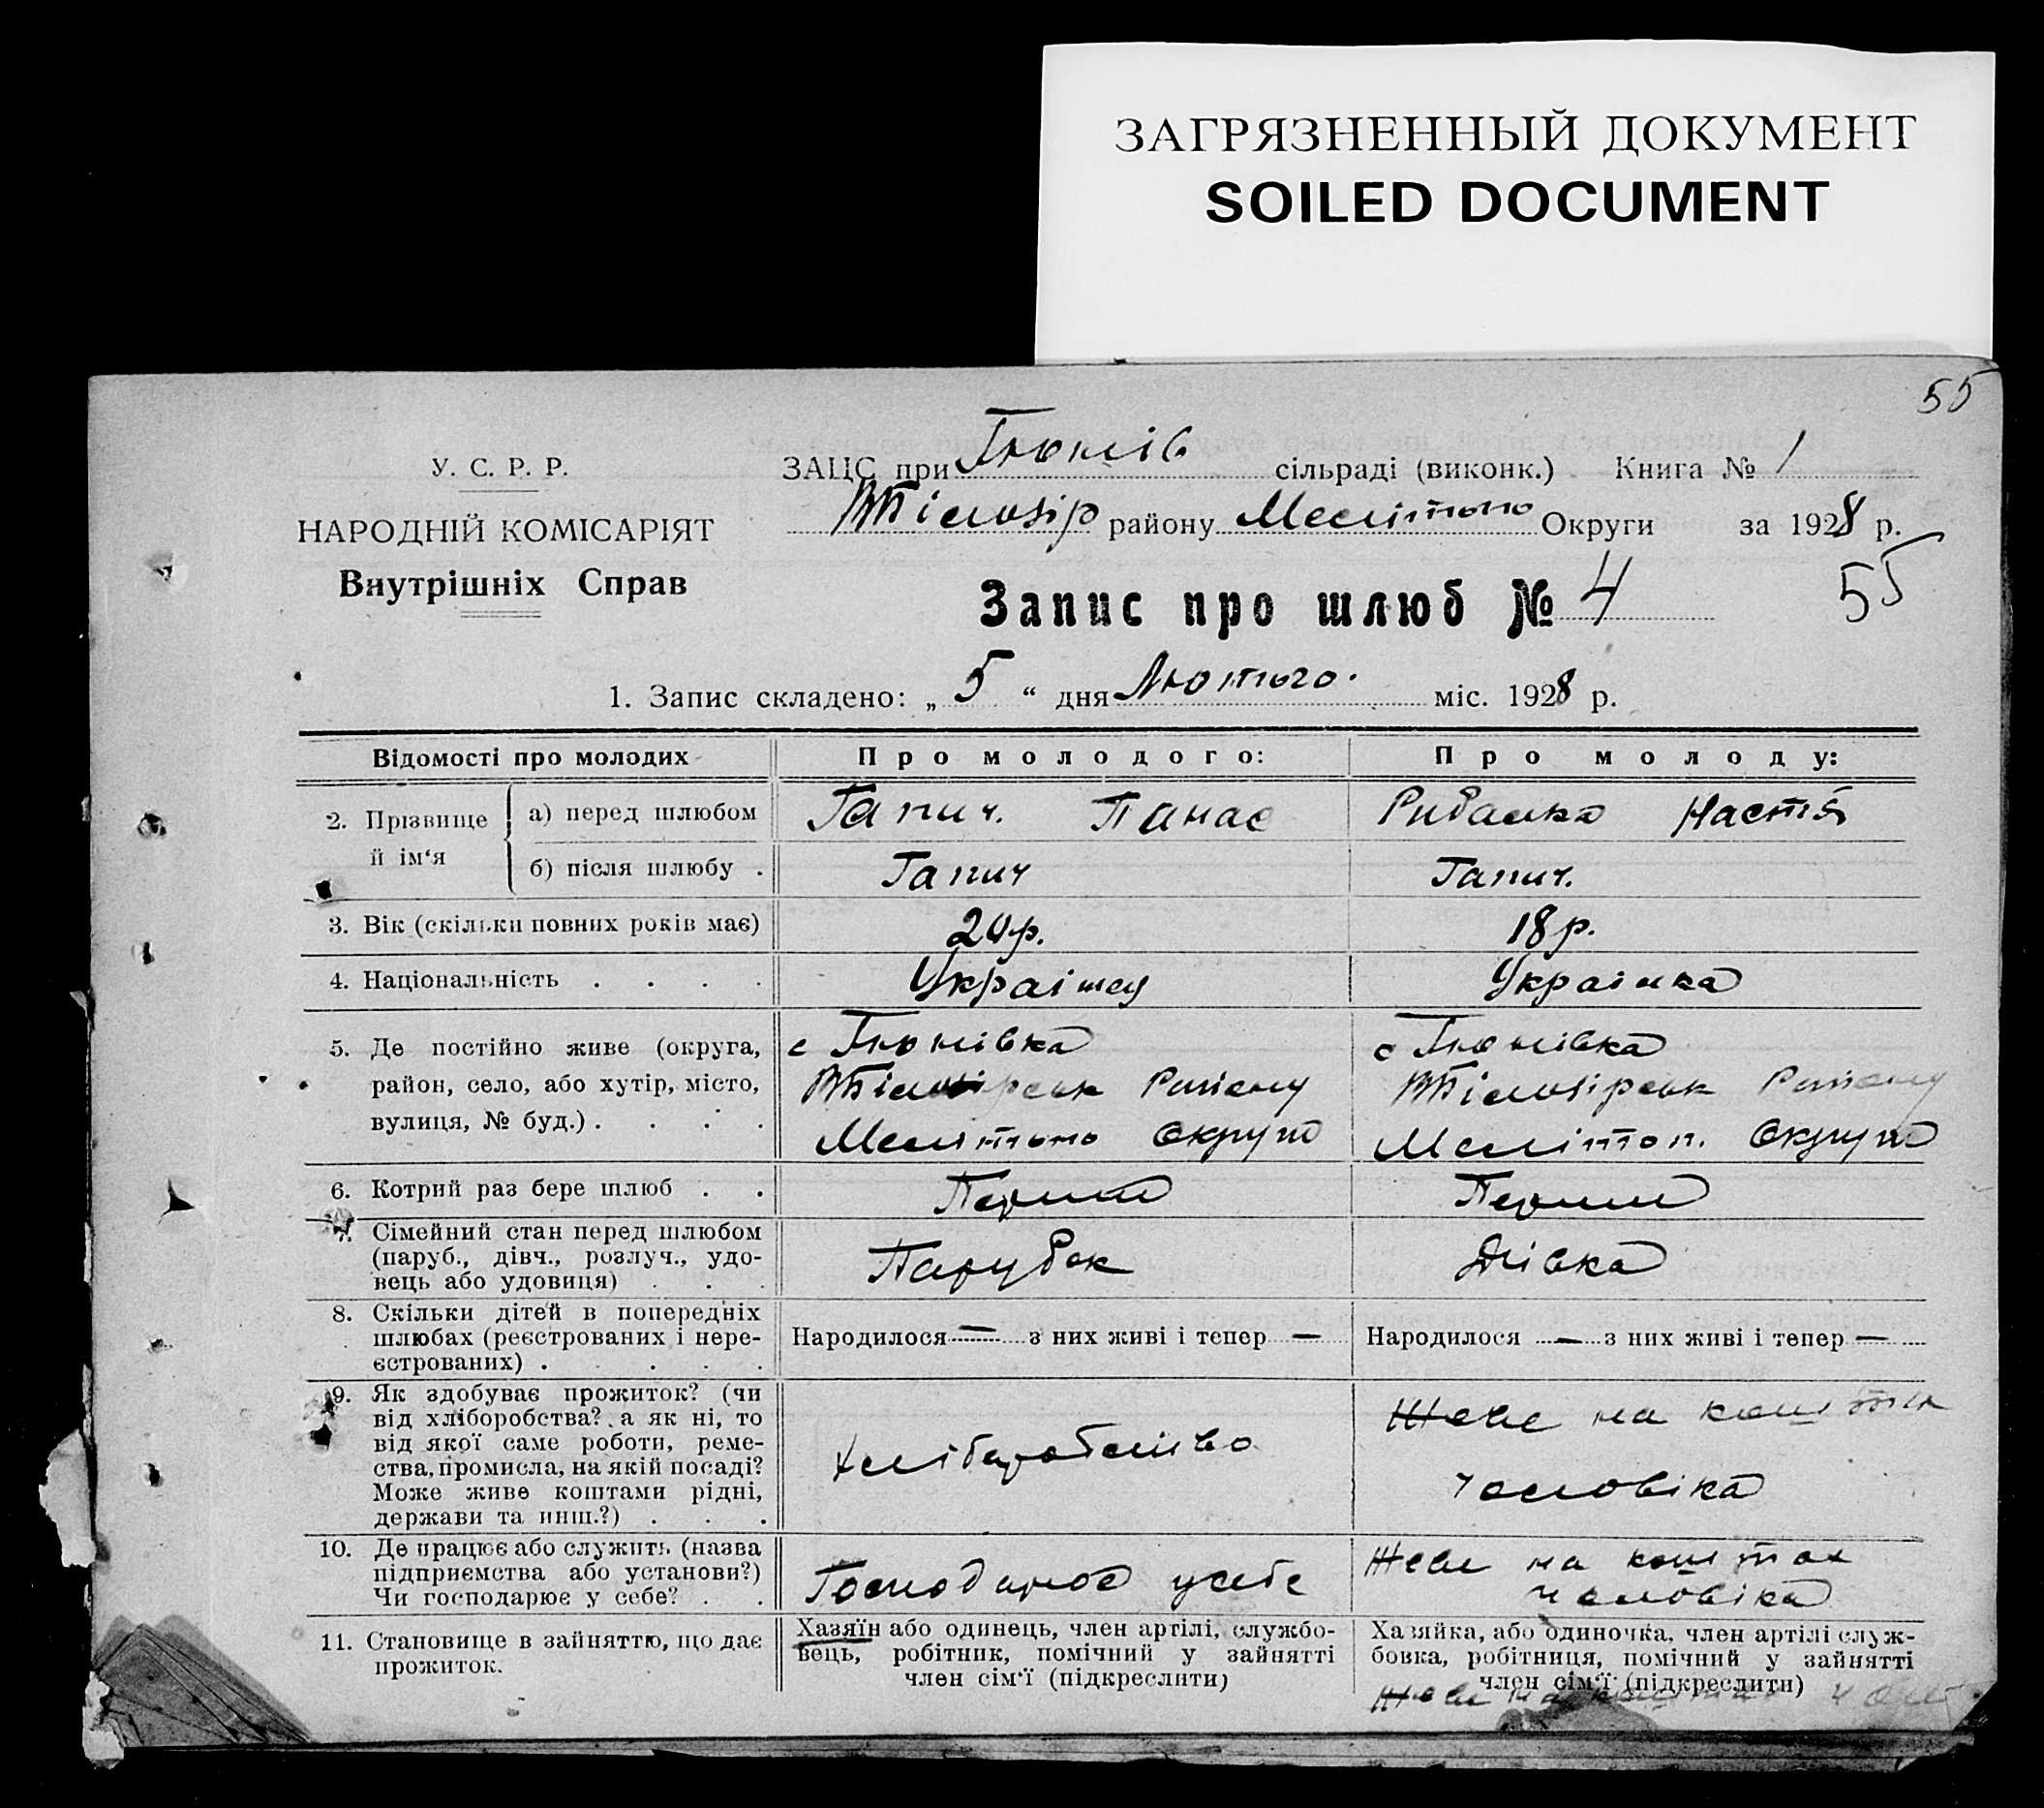 ЗАГРЯЗНЕННЫЙ ДОКУМЕНТ
SOILED DOCUMENT
55
У. С. Р. Р.
НАРОДНІЙ КОМІСАРІЯТ
Внутрішніх Справ
ЗАЦС при сільраді (виконк.) Книга № 1
району Округи за 1928 р.
Запис про шлюб № 4
55
1. Запис складено: „ 5 “ дня Лютого. міс. 1928 р.
Відомості про молодих Про молодого: Про молоду:
2. Прізвище й ім‘я
а) перед шлюбом Гапич. Панас Рибалка Настя
б) після шлюбу . Гапич Гапич.
3. Вік (скільки повних років має) 20р. 18р.
4. Національність . . . . Українец Українка
5. Де постійно живе (округа,
район, село, або хутір, місто,
вулиця, № буд.) . . . .
с Тюнівка
Району
Округи
с Тюнівка
Району
Мелітоп. Округи
6. Котрий раз бере шлюб . . Перший Перший
7. Сімейний стан перед шлюбом
(паруб., дівч., розлуч., удо-
вець або удовиця) . . .
Парубок Дівка
8. Скільки дітей в попередніх
шлюбах (реєстрованих і нере-
єстрованих) . . . . .
Народилося — з них живі і тепер — Народилося — з них живі і тепер —
9. Як здобуває прожиток? (чи
від хліборобства? а як ні, то
від якої саме роботи, реме-
ства, промисла, на якій посаді?
Може живе коштами рідні,
держави та инш.?) . . .
Хліборобство
Живе на коштах
чоловіка
10. Де працює або служить (назва
підприємства або установи?)
Чи господарює у себе? . .
Господарює усебе
Живе на коштах
чоловіка
11. Становище в зайняттю, що дає
прожиток.
Хазяїн або одинець, член артілі, службо-
вець, робітник, помічний у зайнятті
член сім‘ї (підкреслити)
Хазяйка, або одиночка, член артілі служ-
бовка, робітниця, помічний у зайнятті
член сім‘ї (підкреслити)
Живе на